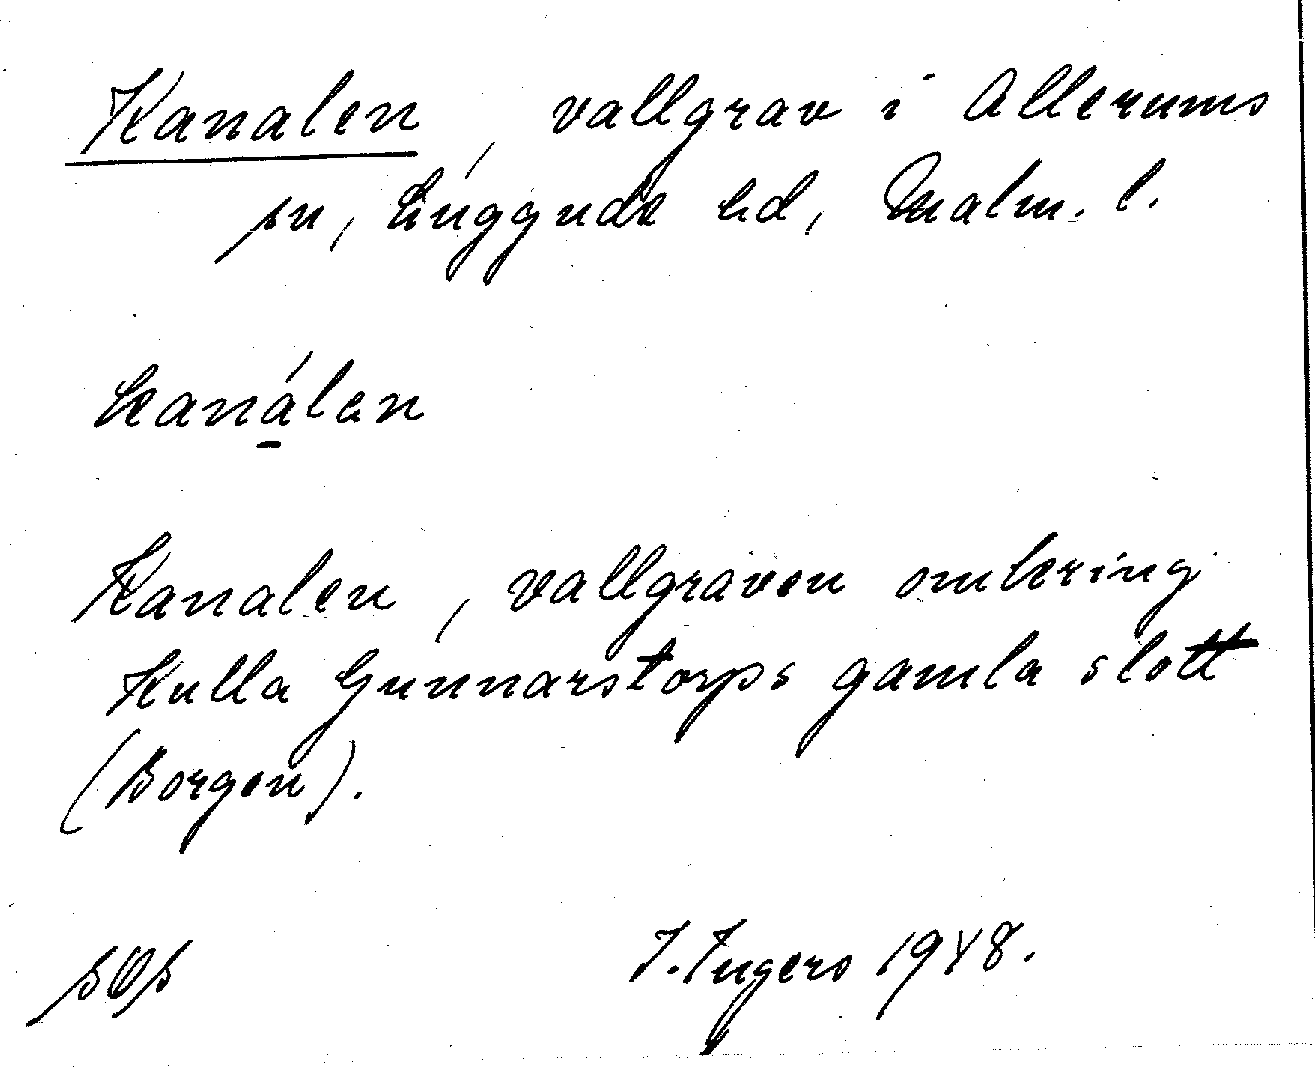 Kanalen, vallgrav i Allerums
sn, Luggude hd, Malm. l.
kanálen
Kanalen, vallgraven omkring
Kulla Gunnarstorps gamla slott
(Borgen).
I. Ingers 1948.